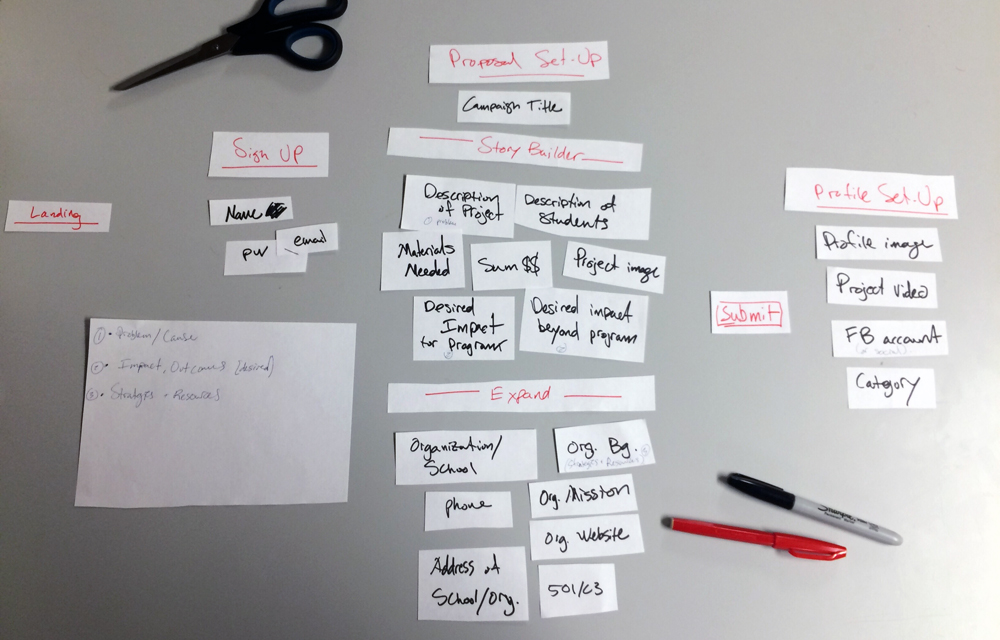 Landing
Sign Up
Name
email
PW
① • Problem/Cause
② • Impact, Outcomes (desired)
③ • Strategies + Resources
Proposal Set-Up
Campaign Title
Story Builder
Description
of Project
① problem
Description of
Students
Materials
Needed
Sum $$
Project image
Desired
Impact
for Program
②
Desired impact
beyond program
②
Expand
Organization/
School
Org. Bg. ③
(Strategies + Resources)
phone
Org. Mission
Org. Website
Address of
School/Org.
501/C3
Submit
Profile Set-Up
Profile image
Project video
FB account
(or social)
Category
Sharpie